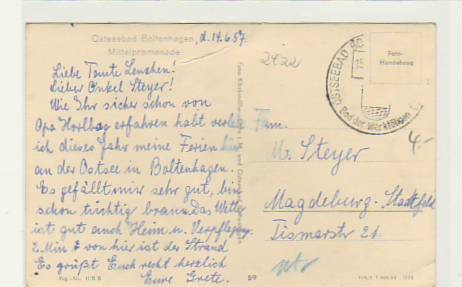 Ostseebad Boltenhagen, d. 14.6.57.
Mittelpromenade
Liebe Tante Lenchen!
Lieber Onkel Steyer!
Wie Ihr sicher schon von
Opa erfahren habt verlebe
ich dieses Jahr meine Ferien hier
an der Ostsee in Boltenhagen.
Es gefällt mir sehr gut, bin
schon tüchtig braun. Das Wetter
ist gut auch Heim u. Verpflegung.
2 Min. von hier ist der Strand
Es grüßt Euch recht herzlich
Eure Grete.
2422
OSTSEEBAD
Bad der Werktätigen
Foto-
Handabzug
4,-
Fam.
Steyer
Magdeburg-Stadtfeld
Bismarkstr 21.
B9